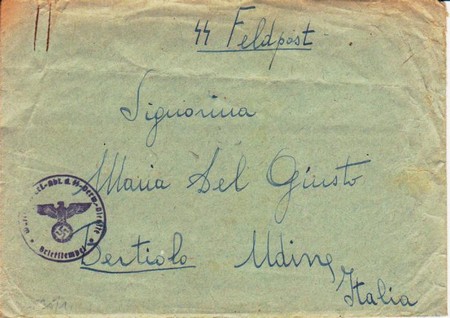 SS Feldpost
Signorina
Maria Del Giusto
Bertiolo Udine,
Italia
Briefstempel